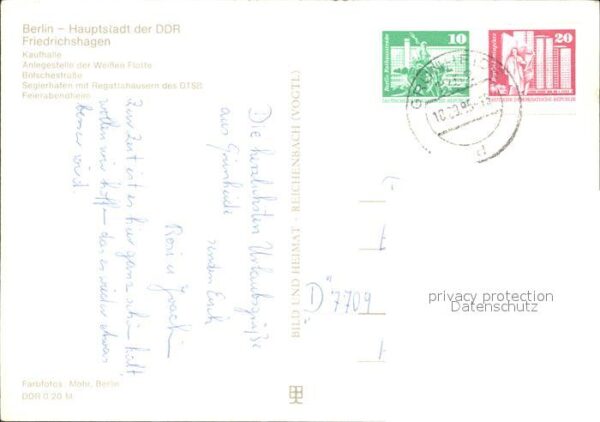 Berlin – Hauptstadt der DDR
Friedrichshagen
Kaufhalle
Anlegestelle der Weißen Flotte
Bölschestraße
Seglerhafen mit Regattahäusern des DTSB
Feierabendheim
10
Berlin, Rathausstraße
DEUTSCHE DEMOKRATISCHE REPUBLIK
20
Berlin, Leninplatz
DEUTSCHE DEMOKRATISCHE REPUBLIK
Die herzlichsten Urlaubsgrüße
aus Grünheide
senden Euch
Rosi u. Joachim
Zur Zeit ist es hier ganz schön kalt,
wollen wir hoffen das es wieder etwas
besser wird.
BILD UND HEIMAT · REICHENBACH (VOGTL)
D 7709
privacy protection
Datenschutz
Farbfotos: Mohr, Berlin
DDR 0,20 M